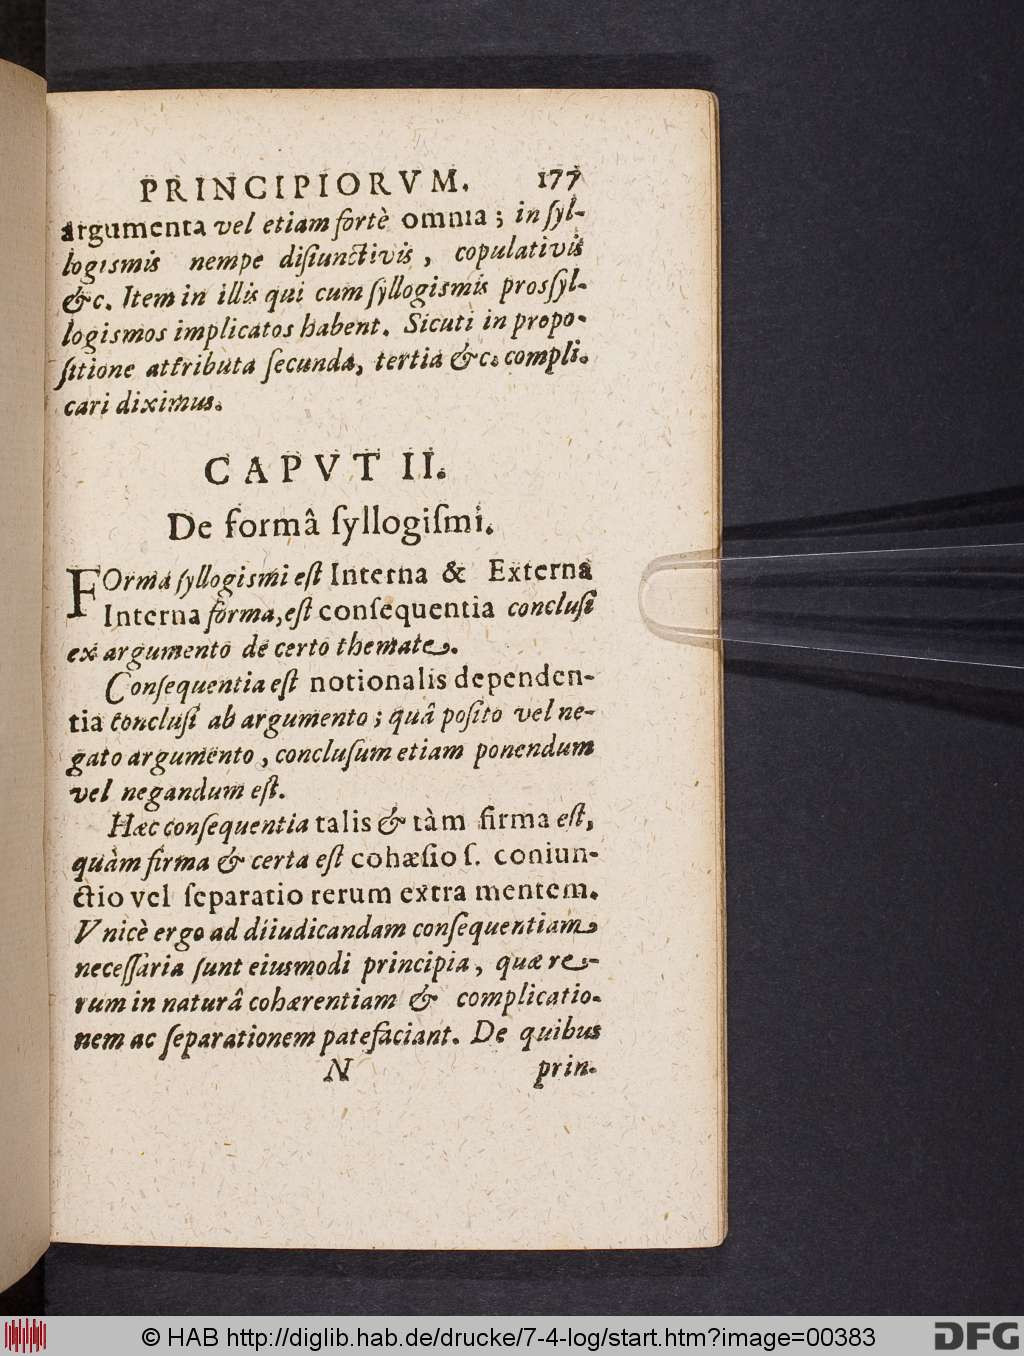 PRINCIPIORVM. 177
argumenta vel etiam fortè omnia; in ſyl-
logismis nempe diſiunctivis, copulativis
&c. Item in illis qui cum ſyllogismis prosſyl-
logismos implicatos habent. Sicuti in propo-
ſitione attributa ſecunda, tertia &c. compli-
cari diximus.
CAPVT II.
De formâ ſyllogiſmi.
FOrma ſyllogismi eſt Interna & Externa
Interna forma, eſt conſequentia concluſi
ex argumento de certo themate.
Conſequentia eſt notionalis dependen-
tia concluſi ab argumento; quâ poſito vel ne-
gato argumento, concluſum etiam ponendum
vel negandum eſt.
Hæc conſequentia talis & tàm firma eſt,
quàm firma & certa eſt cohæſio ſ. coniun-
ctio vel ſeparatio rerum extra mentem.
Vnicè ergo ad diiudicandam conſequentiam
neceſſaria ſunt eiusmodi principia, quæ re-
rum in naturâ cohærentiam & complicatio-
nem ac ſeparationem patefaciant. De quibus
N prin-
© HAB http://diglib.hab.de/drucke/7-4-log/start.htm?image=00383
DFG